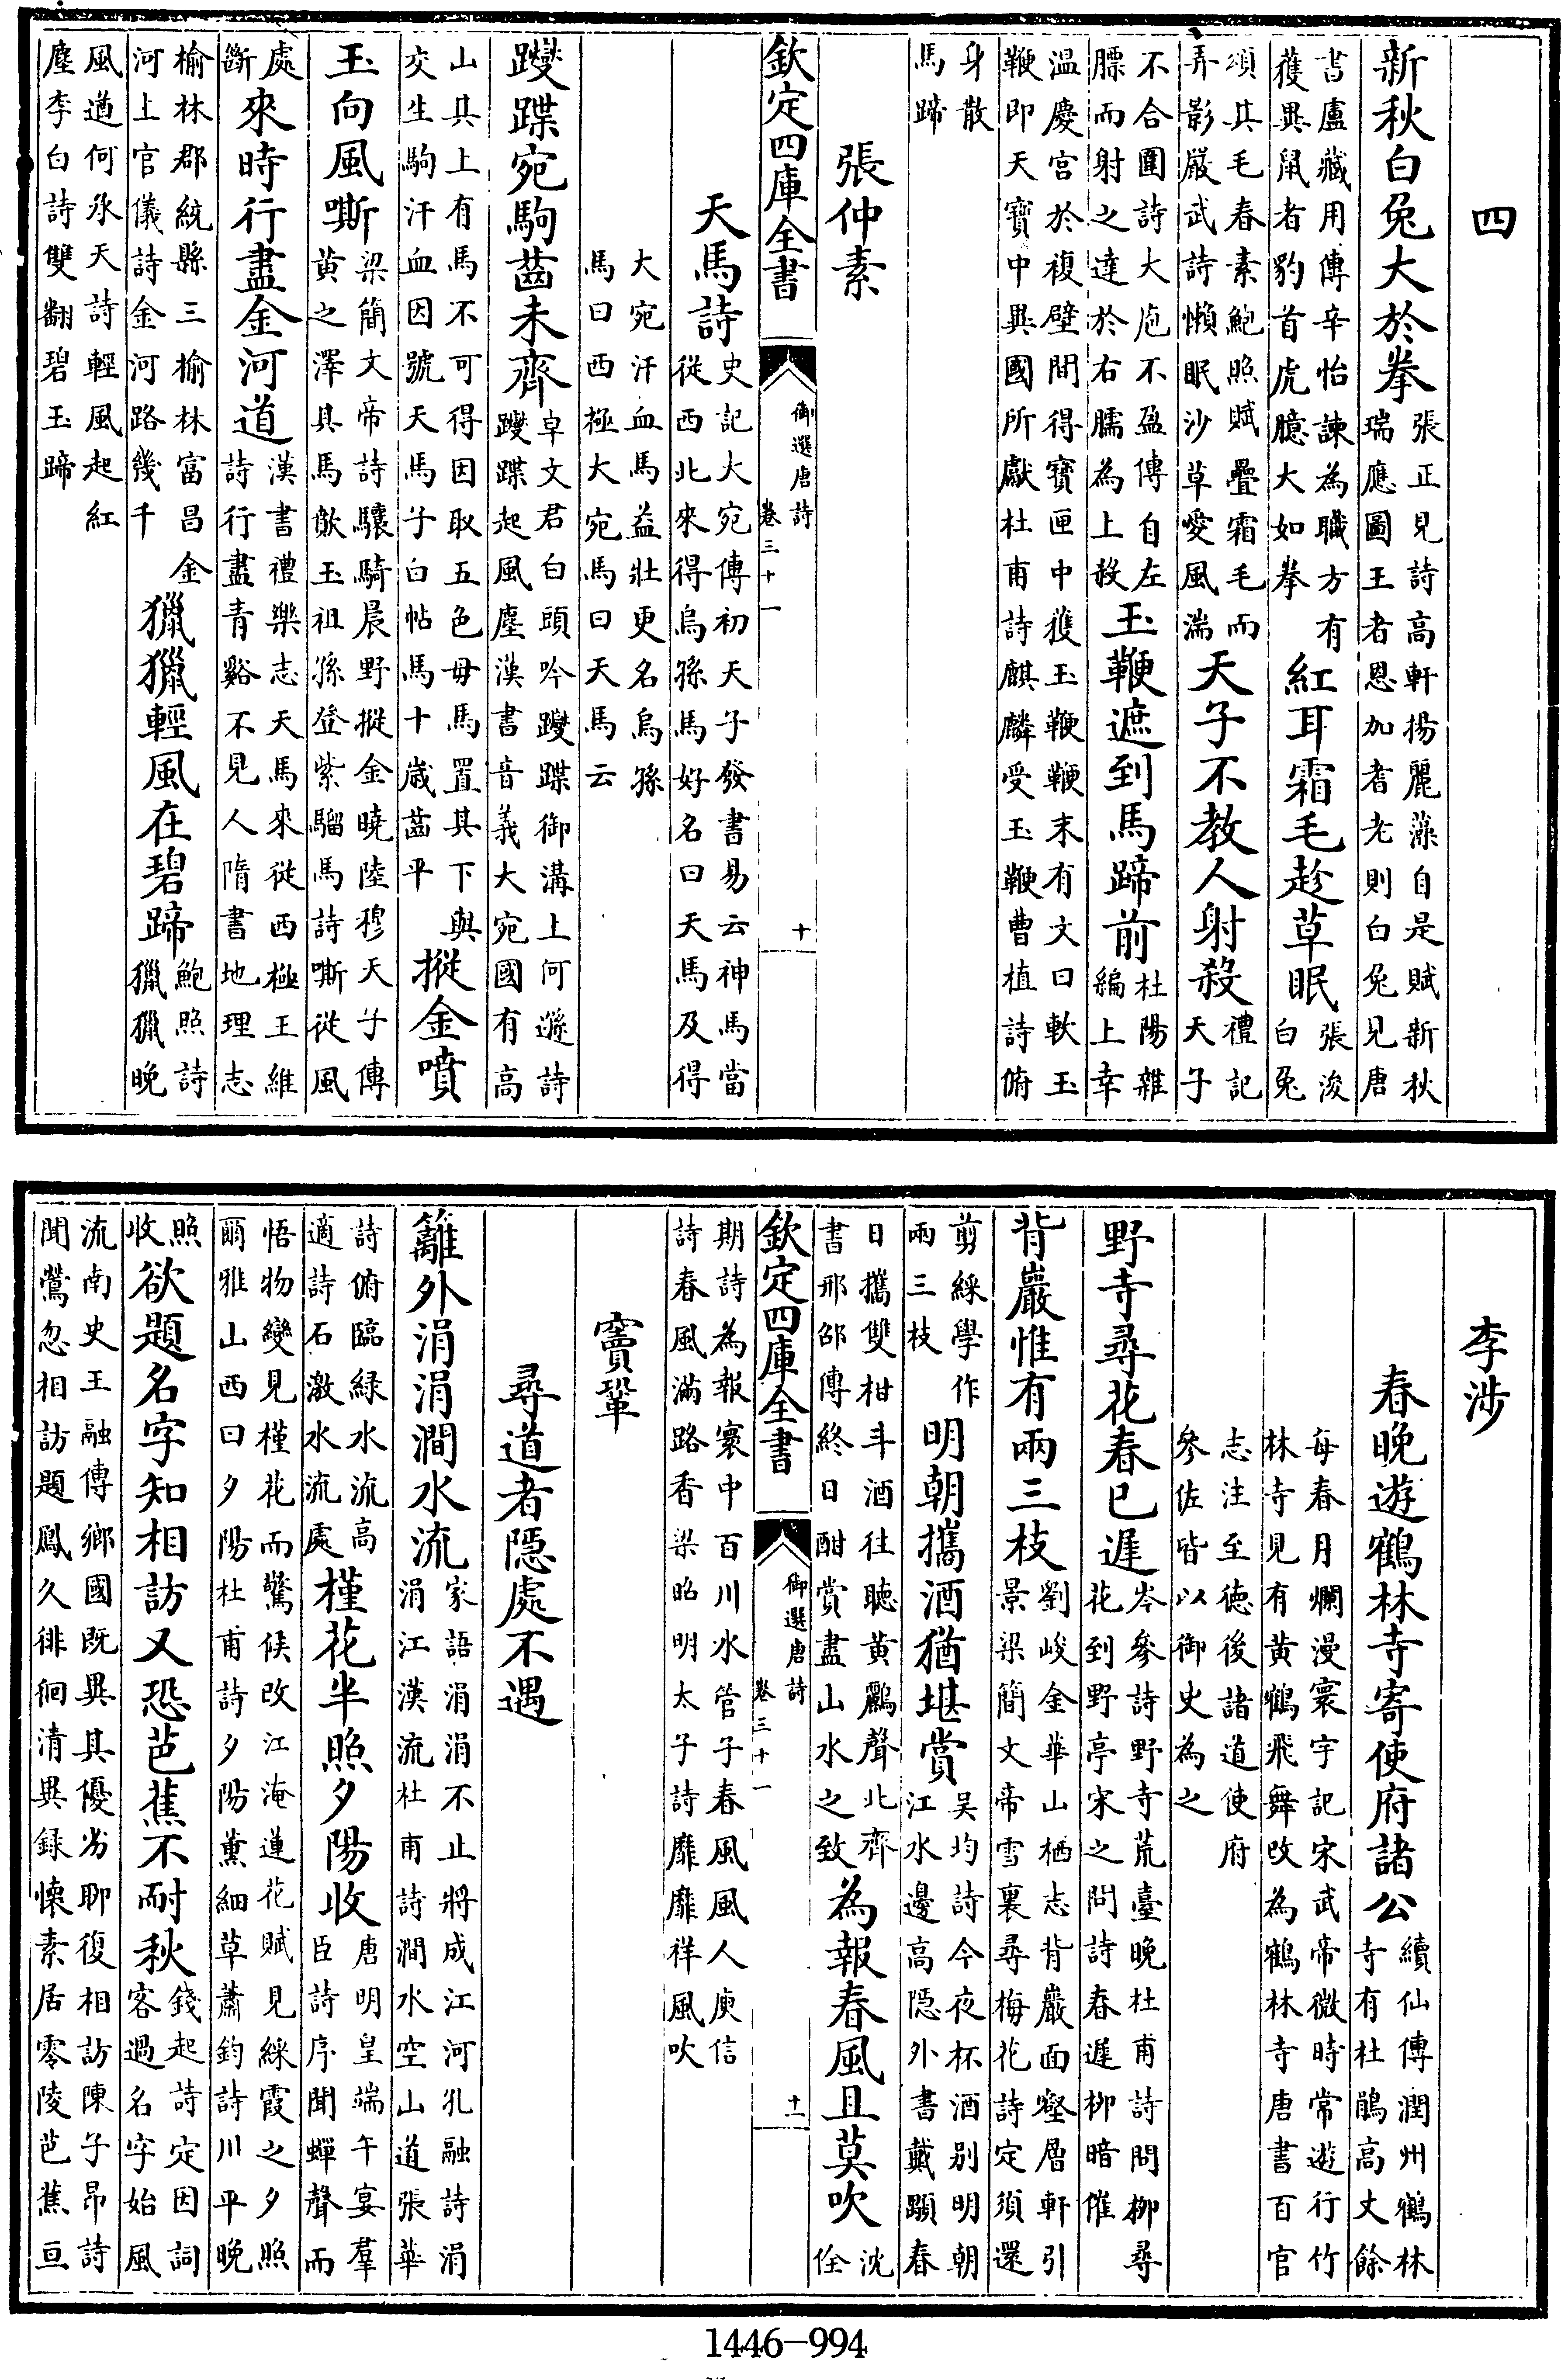 四
新秋白兔大於拳張正見詩高軒揚麗藻自是賦新秋瑞應圖王者恩加耆老則白兔見唐
書盧藏用傳辛怡諫為職方有獲異鼠者豹首虎臆大如拳紅耳霜毛趁草眠張浚白兔
頌其毛春素鮑照賦疊霜毛而弄影嚴武詩懶眠沙草愛風湍天子不教人射殺禮記天子
不合圍詩大庖不盈傳自左膘而射之達於右腢為上殺玉鞭遮到馬蹄前杜陽雜編上幸
溫慶宮於複壁間得寶匣中獲玉鞭鞭末有文曰軟玉鞭即天寶中異國所獻杜甫詩麒麟受玉鞭曹植詩俯
身散馬蹄
張仲素
欽定四庫全書 御選唐詩 卷三十一 十
天馬詩史記大宛傳初天子發書易云神馬當從西北來得烏孫馬好名曰天馬及得
大宛汗血馬益壯更名烏孫馬曰西極大宛馬曰天馬云
躞蹀宛駒齒未齊卓文君白頭吟躞蹀御溝上何遜詩躞蹀起風塵漢書音義大宛國有高
山其上有馬不可得因取五色母馬置其下與交生駒汗血因號天馬子白帖馬十歲齒平摐金噴
玉向風嘶梁簡文帝詩驤騎晨野摐金曉陸穆天子傳黃之澤其馬歕玉祖孫登紫騮馬詩嘶從風
處斷來時行盡金河道漢書禮樂志天馬來從西極王維詩行盡青谿不見人隋書地理志
榆林郡統縣三榆林富昌金河上官儀詩金河路幾千獵獵輕風在碧蹄鮑照詩獵獵晚
風遒何承天詩輕風起紅塵李白詩雙翻碧玉蹄
李涉
春晚遊鶴林寺寄使府諸公續仙傳潤州鶴林寺有杜鵑高丈餘
每春月爛漫寰宇記宋武帝微時常遊行竹林寺見有黃鶴飛舞改為鶴林寺唐書百官
志注至德後諸道使府參佐皆以御史為之
野寺尋花春已遲岑參詩野寺荒臺晚杜甫詩問柳尋花到野亭宋之問詩春遲柳暗催
背巖惟有兩三枝劉峻金華山栖志背巖面壑層軒引景梁簡文帝雪裏尋梅花詩定須還
剪綵學作兩三枝明朝攜酒猶堪賞吴均詩今夜杯酒别明朝江水邊高隱外書戴顒春
日攜雙柑斗酒往聽黃鸝聲北齊書邢邵傳終日酣賞盡山水之致為報春風且莫吹沈佺
欽定四庫全書 御選唐詩 卷三十一 十一
期詩為報寰中百川水管子春風風人庾信詩春風滿路香梁昭明太子詩靡靡祥風吹
竇鞏
尋道者隱處不遇
籬外涓涓澗水流家語涓涓不止將成江河孔融詩涓涓江漢流杜甫詩澗水空山道張華
詩俯臨緑水流高適詩石激水流處槿花半照夕陽收唐明皇端午宴羣臣詩序聞蟬聲而
悟物變見槿花而驚候改江淹蓮花賦見綵霞之夕照爾雅山西曰夕陽杜甫詩夕陽薰細草蕭鈞詩川平晚
照收欲題名字知相訪又恐芭蕉不耐秋錢起詩定因詞客過名字始風
流南史王融傳鄉國既異其優劣聊復相訪陳子昂詩聞鶯忽相訪題鳳久徘徊清異録懷素居零陵芭蕉亘
1446-994